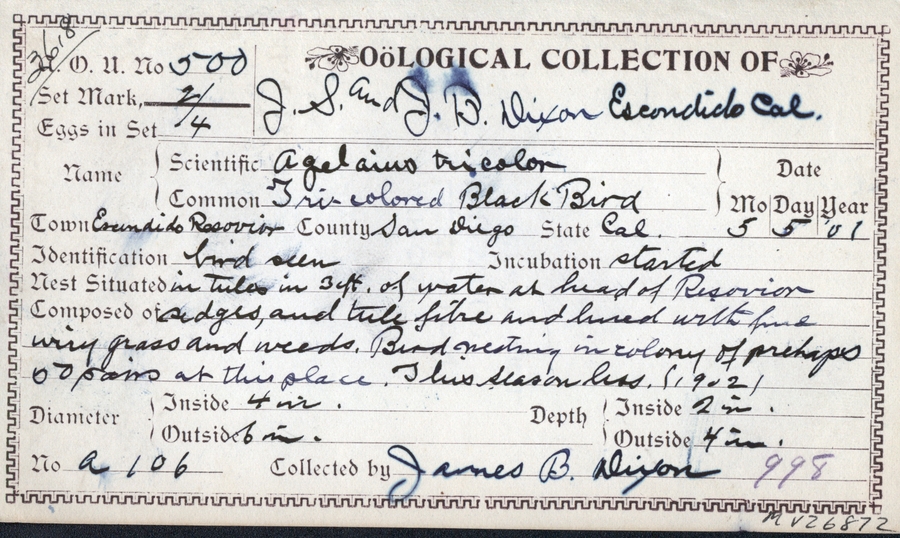 3618
A. O. U. No 500 OöLOGICAL COLLECTION OF
Set Mark, 2/
Eggs in Set 4 J. S. and J. B. Dixon Escondido Cal.
Name Scientific Agelaius tricolor Date
Common Tri-colored Black Bird Mo Day Year
Town Escundido Resovior County San Diego State Cal. 5 5 '01
Identification bird seen Incubation started
Nest Situated in tules in 3 ft. of water at head of Resovior
Composed of sedges, and tule fibre and lined with fine
wiry grass and weeds. Bird nesting in colony of prehaps
pairs at this place. This season less. (1902)
Diameter Inside 4 in. Depth Inside 2 in.
Outside 6 in. Outside 4 in.
No a 106 Collected by James B. Dixon 998
MV26872